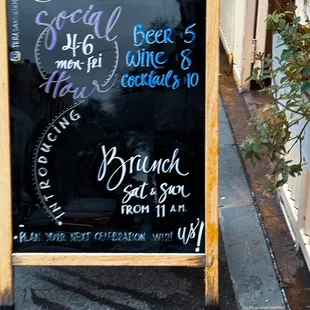 Social
4-6
mon-fri
Hour
Beer 5
Wine 8
Cocktails 10
INTRODUCING
Brunch
Sat & Sun
FROM 11 A.M.
PLAN YOUR NEXT CELEBRATION WITH US!